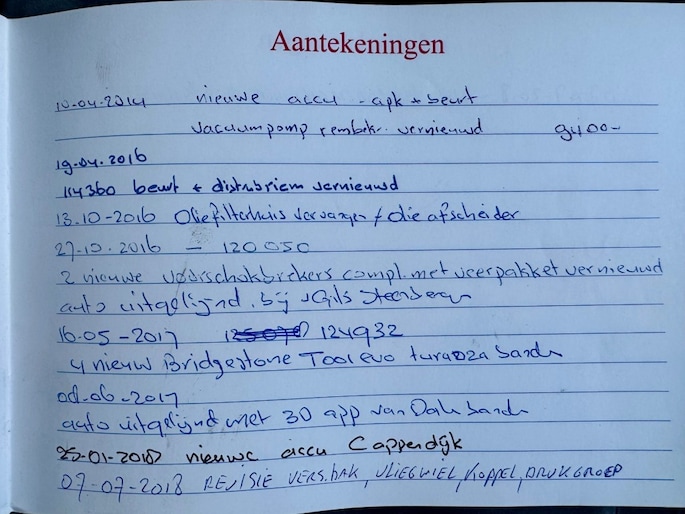 Aantekeningen
10-04-2014 nieuwe accu - apk + beurt
vacuumpomp rembekr. vernieuwd 9400-
19-04-2016
114360 beurt + distribriem vernieuwd
13-10-2016 Oliefilterhuis vervangen / olie afscheider
27-10-2016 - 120050
2 nieuwe voorschokbrekers compl. met veerpakket vernieuwd
auto uitgelijnd. bij v Gils Steenbergen
16-05-2017 124932
4 nieuw Bridgestone T001 evo turanza banden
08-06-2017
auto uitgelijnd met 3D app van Dale banden
nieuwe accu Capperdijk
07-07-2018 REVISIE VERS.BAK, VLIEGWIEL, KOPPEL, DRUKGROEP